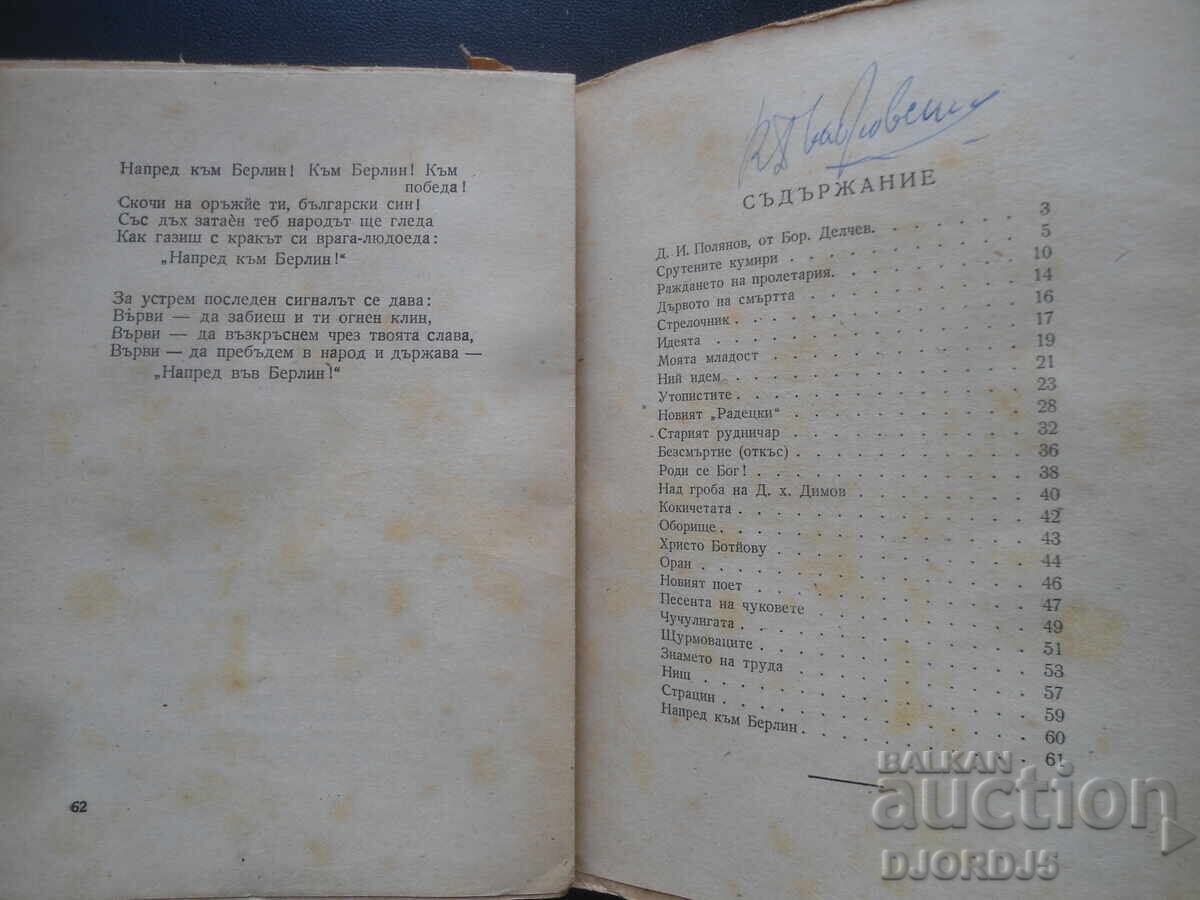 Напред към Берлин! Към Берлин! Към
победа!
Скочи на оръжйе ти, български син!
Със дъх затаѐн теб народът ще гледа
Как газиш с кракът си врага-людоеда:
„Напред към Берлин!“
За устрем последен сигналът се дава:
Върви — да забиеш и ти огнен клин,
Върви — да възкръснем чрез твоята слава,
Върви — да пребъдем в народ и държава —
„Напред във Берлин!“
62
СЪДЪРЖАНИЕ
Д. И. Полянов, от Бор. Делчев. 3
Срутените кумири 5
Раждането на пролетария. 10
Дървото на смъртта 14
Стрелочник 16
Идеята 17
Моята младост 19
Ний идем 21
Утопистите 23
Новият „Радецки“ 28
Старият рудничар 32
Безсмъртие (откъс) 36
Роди се Бог! 38
Над гроба на Д. х. Димов 40
Кокичетата 42
Оборище 43
Христо Ботйову 44
Оран 46
Новият поет 47
Песента на чуковете 49
Чучулигата 51
Щурмоваците 53
Знамето на труда 57
Ниш 59
Страцин 60
Напред към Берлин 61
BALKAN
auction
DJORDJ5